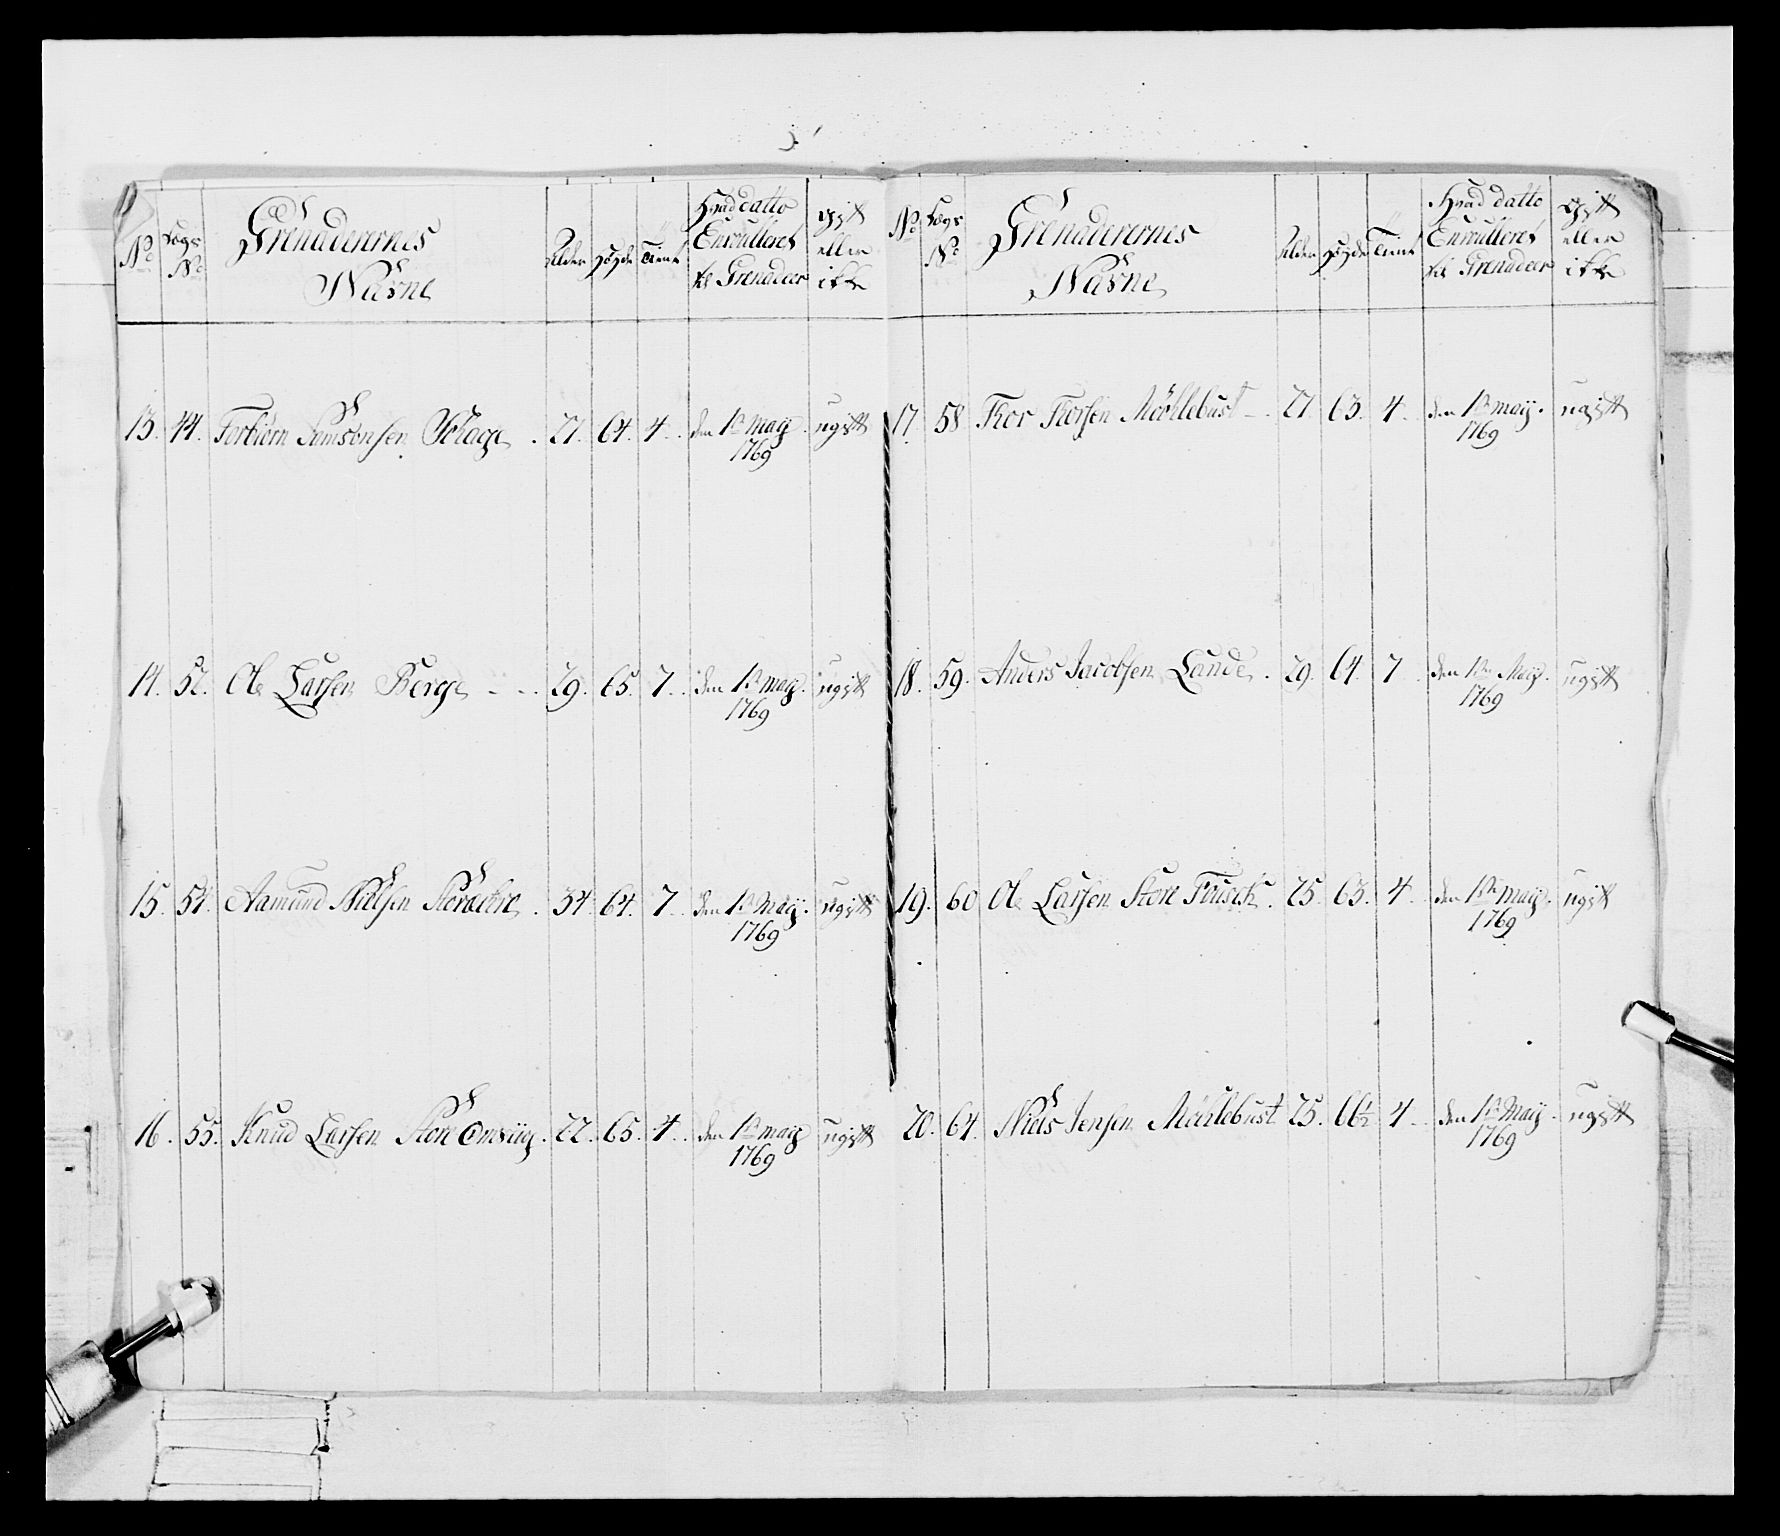 No
Lægs No
Grenaderernes Nafne
Alder
Høyde
Tient
Hvad datto Enroulleret til Grenadeer
Gift eller ikke
13. 44. Torbiörn Samsonsen 27. 64. 4. den 1ste may 1769 ugift
14. 52. Ole Larsen Berge 29. 65. 7. den 1ste may 1769 ugift
15. 54. Aamund Nielsen 34. 64. 7. den 1ste May 1769 ugift
16. 55. Knud Larsen Store 22. 65. 4. den 1ste may 1769 ugift
No
Lægs No
Grenaderernes Nafne
Alder
Høyde
Tient
Hvad datto Enroulleret til Grenadeer
Gift eller ikke
17. 58 Thor Thorsen Möhlebust 27. 63. 4. den 1ste may. 1769 ugift
18. 59. Anders Jacobsen Lande. 29. 64. 7 den 1ste May. 1769 ugift
19. 60 Ole Larsen Store 25. 63. 4. den 1ste may. 1769 ugift
20. 64. Niels Jensen Möhlebust 25. 66½ 4. den 1ste May. 1769 ugift